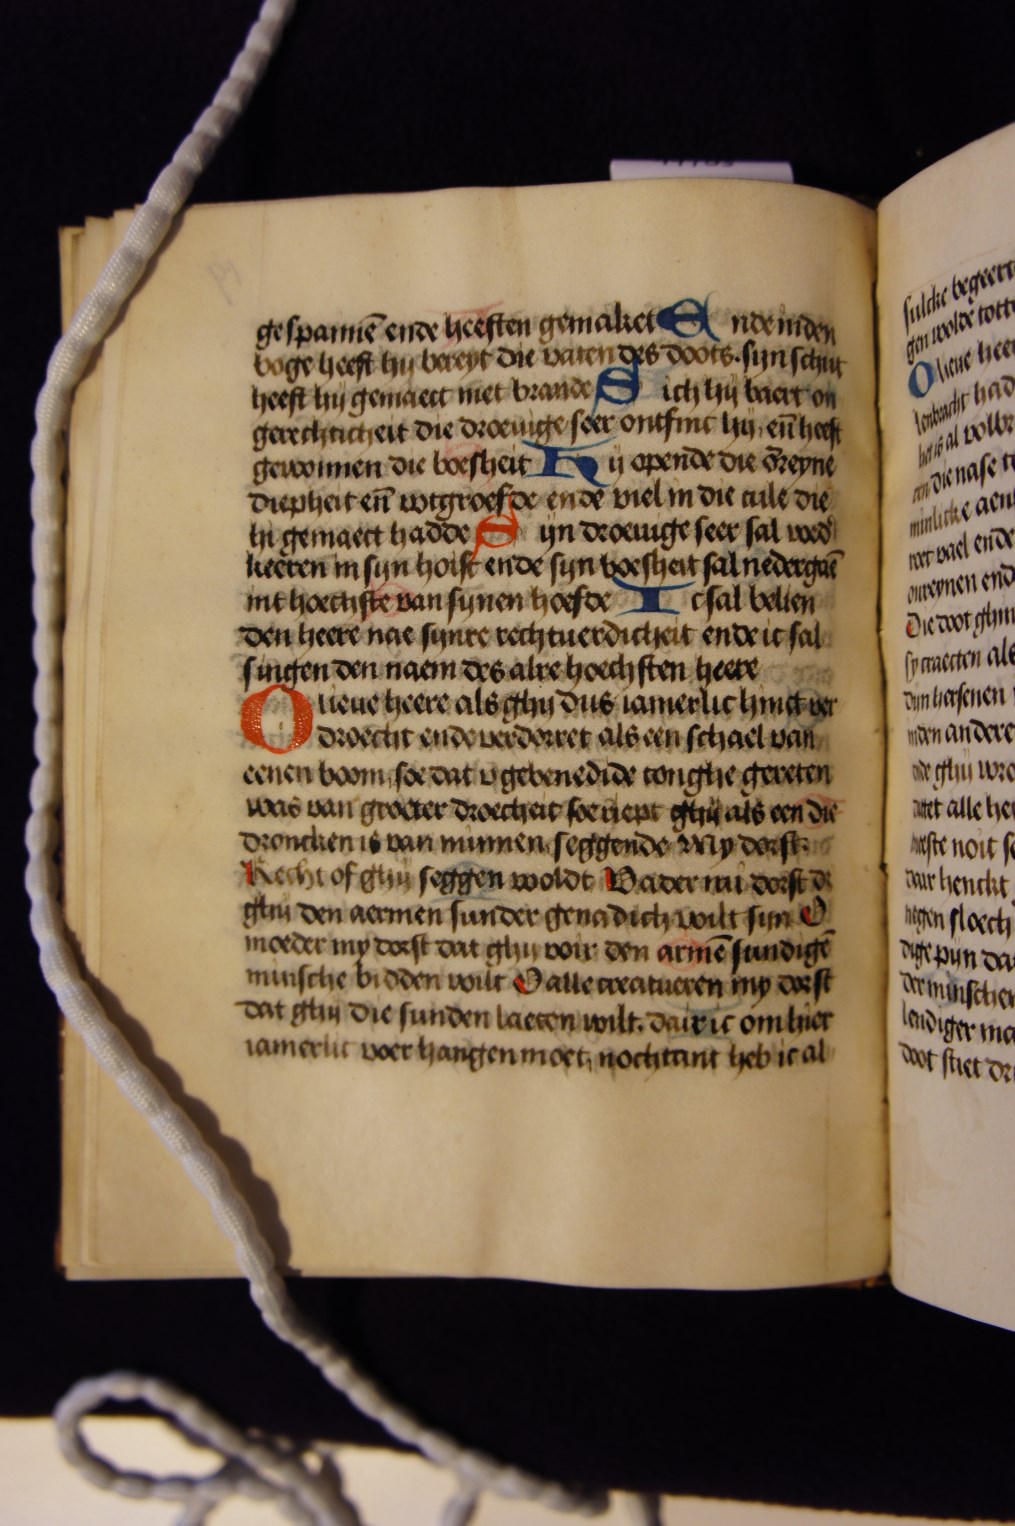 gespannē ende heeften gemaket Ende in den
boge heeft hy bereyt die vaten des doots. syn schut
heeft hy gemaect met brande Sich hy baert on
gerechticheit die droeuige seer ontfinc hy, eñ heeft
gewonnen die boesheit Hy opende die
diepheit eñ wtgroefde ende viel in die cule die
hi gemaect hadde Syn droeuige seer sal werd
keeren in syn hoift ende syn boesheit sal nedergaē
int hoechste van synen hoefde Ic sal belien
den heere nae synre rechtuerdicheit ende ic sal
singen den naem des alre hoechsten heere
O lieue heere als ghy dus iamerlic hinct ver
droecht ende verdorret als een schael van
eenen boom, soe dat v gebenedide tonghe gereten
was van groeter droecheit soe riept ghy als een die
droncken is van minnen, seggende My dorst.
Recht of ghy seggen woldt Vader mi dorst dz
ghy den aermen sunder genadich wilt syn O
moeder my dorst dat ghy voir den armē sundigē
minsche bidden wilt O alle creatueren my dorst
dat ghy die sunden laeten wilt. dair ic om hier
iamerlic voer hangen moet, nochtant heb ic al
sulcke begeert
gen wolde tott
O lieue heer
had
het is al volbr
die nase
minlicke
ende
onreynen end
Die doot ghin
sy traecten als
Dyn hersenen
inden andere
ghy wro
alle he
noit s
hencht
sloech
dige pyn da
der minschen
lendiger
doot stiet